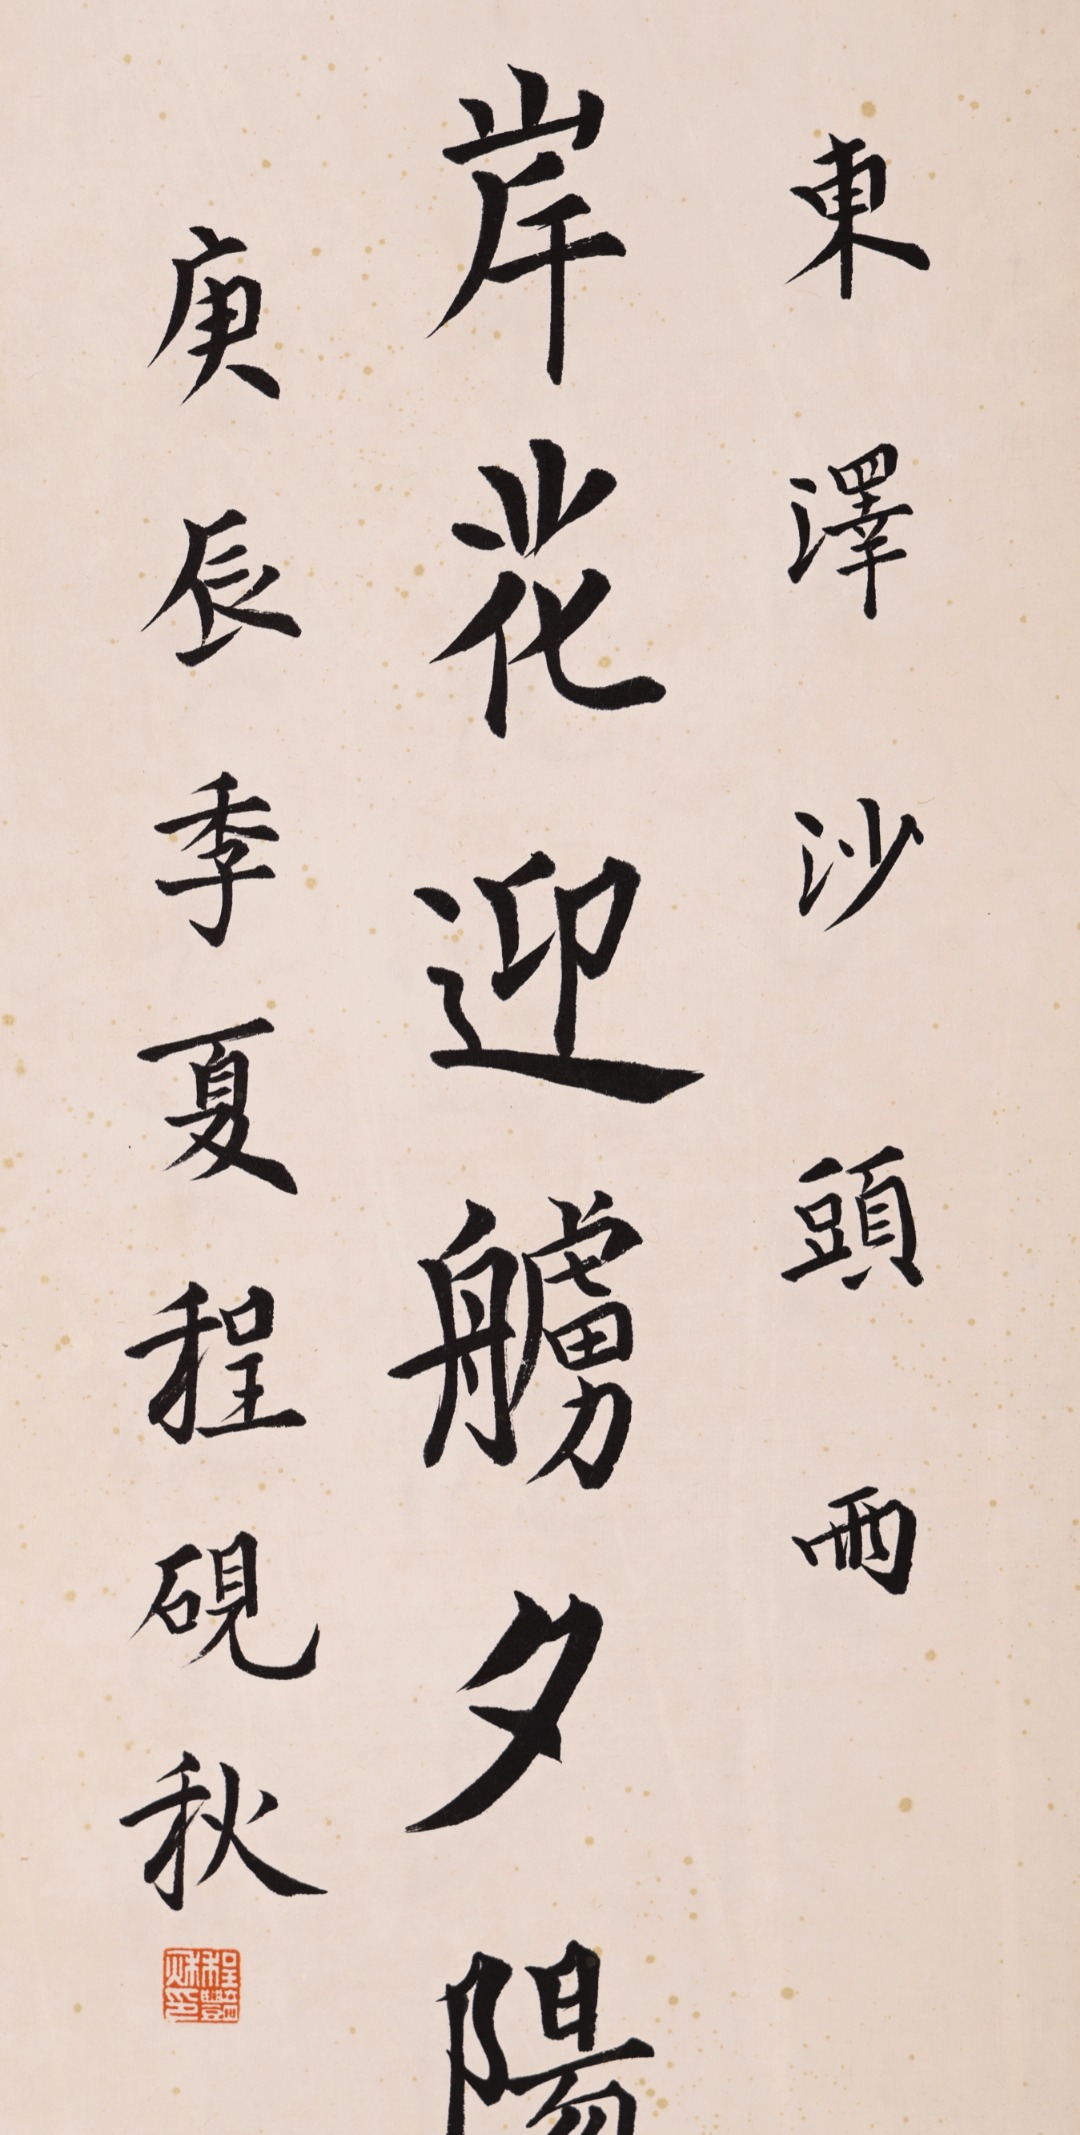 東澤沙頭雨
岸花迎艣夕陽
庚辰季夏程硯秋
程豔秋印